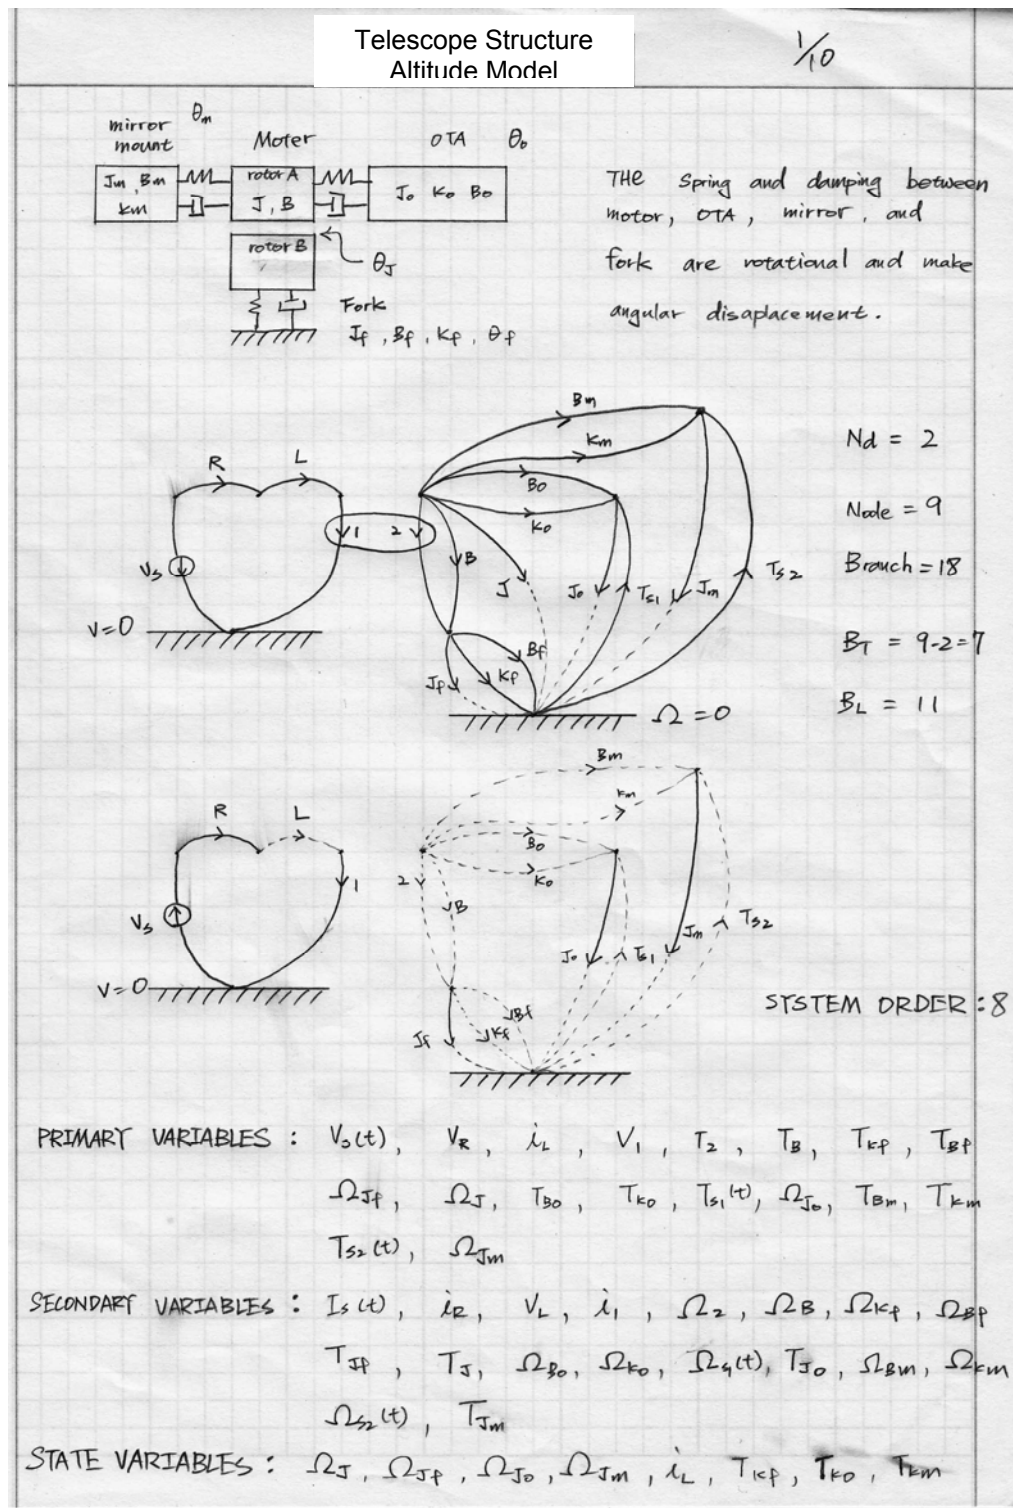 Telescope Structure
Altitude Model
1/10
mirror
mount
θm
Moter
OTA
θo
Jm, Bm
Km
rotor A
J, B
Jo Ko Bo
rotor B
θJ
Fork
Jf, Bf, Kf, θf
THE Spring and damping between
motor, OTA, mirror, and
fork are rotational and make
angular disaplacement.
Bm
Km
Bo
Ko
R
L
1
2
B
J
Jo
Ts1
Jm
Ts2
Vs
V=0
Bf
Kf
Jf
Ω=0
Nd = 2
Node = 9
Branch = 18
BT = 9-2=7
BL = 11
Bm
Km
R
L
Bo
Ko
1
2
B
Vs
Jo
Ts1
Jm
Ts2
V=0
Bf
Kf
Jf
SYSTEM ORDER: 8
PRIMARY VARIABLES : Vs(t), VR, iL, V1, T2, TB, TKf, TBf
ΩJf, ΩJ, TBo, TKo, Ts1(t), ΩJo, TBm, TKm
Ts2(t), ΩJm
SECONDARY VARIABLES : Is(t), iR, VL, i1, Ω2, ΩB, ΩKf, ΩBf
TJf, TJ, ΩBo, ΩKo, Ωs1(t), TJo, ΩBm, ΩKm
Ωs2(t), TJm
STATE VARIABLES : ΩJ, ΩJf, ΩJo, ΩJm, iL, TKf, TKo, TKm